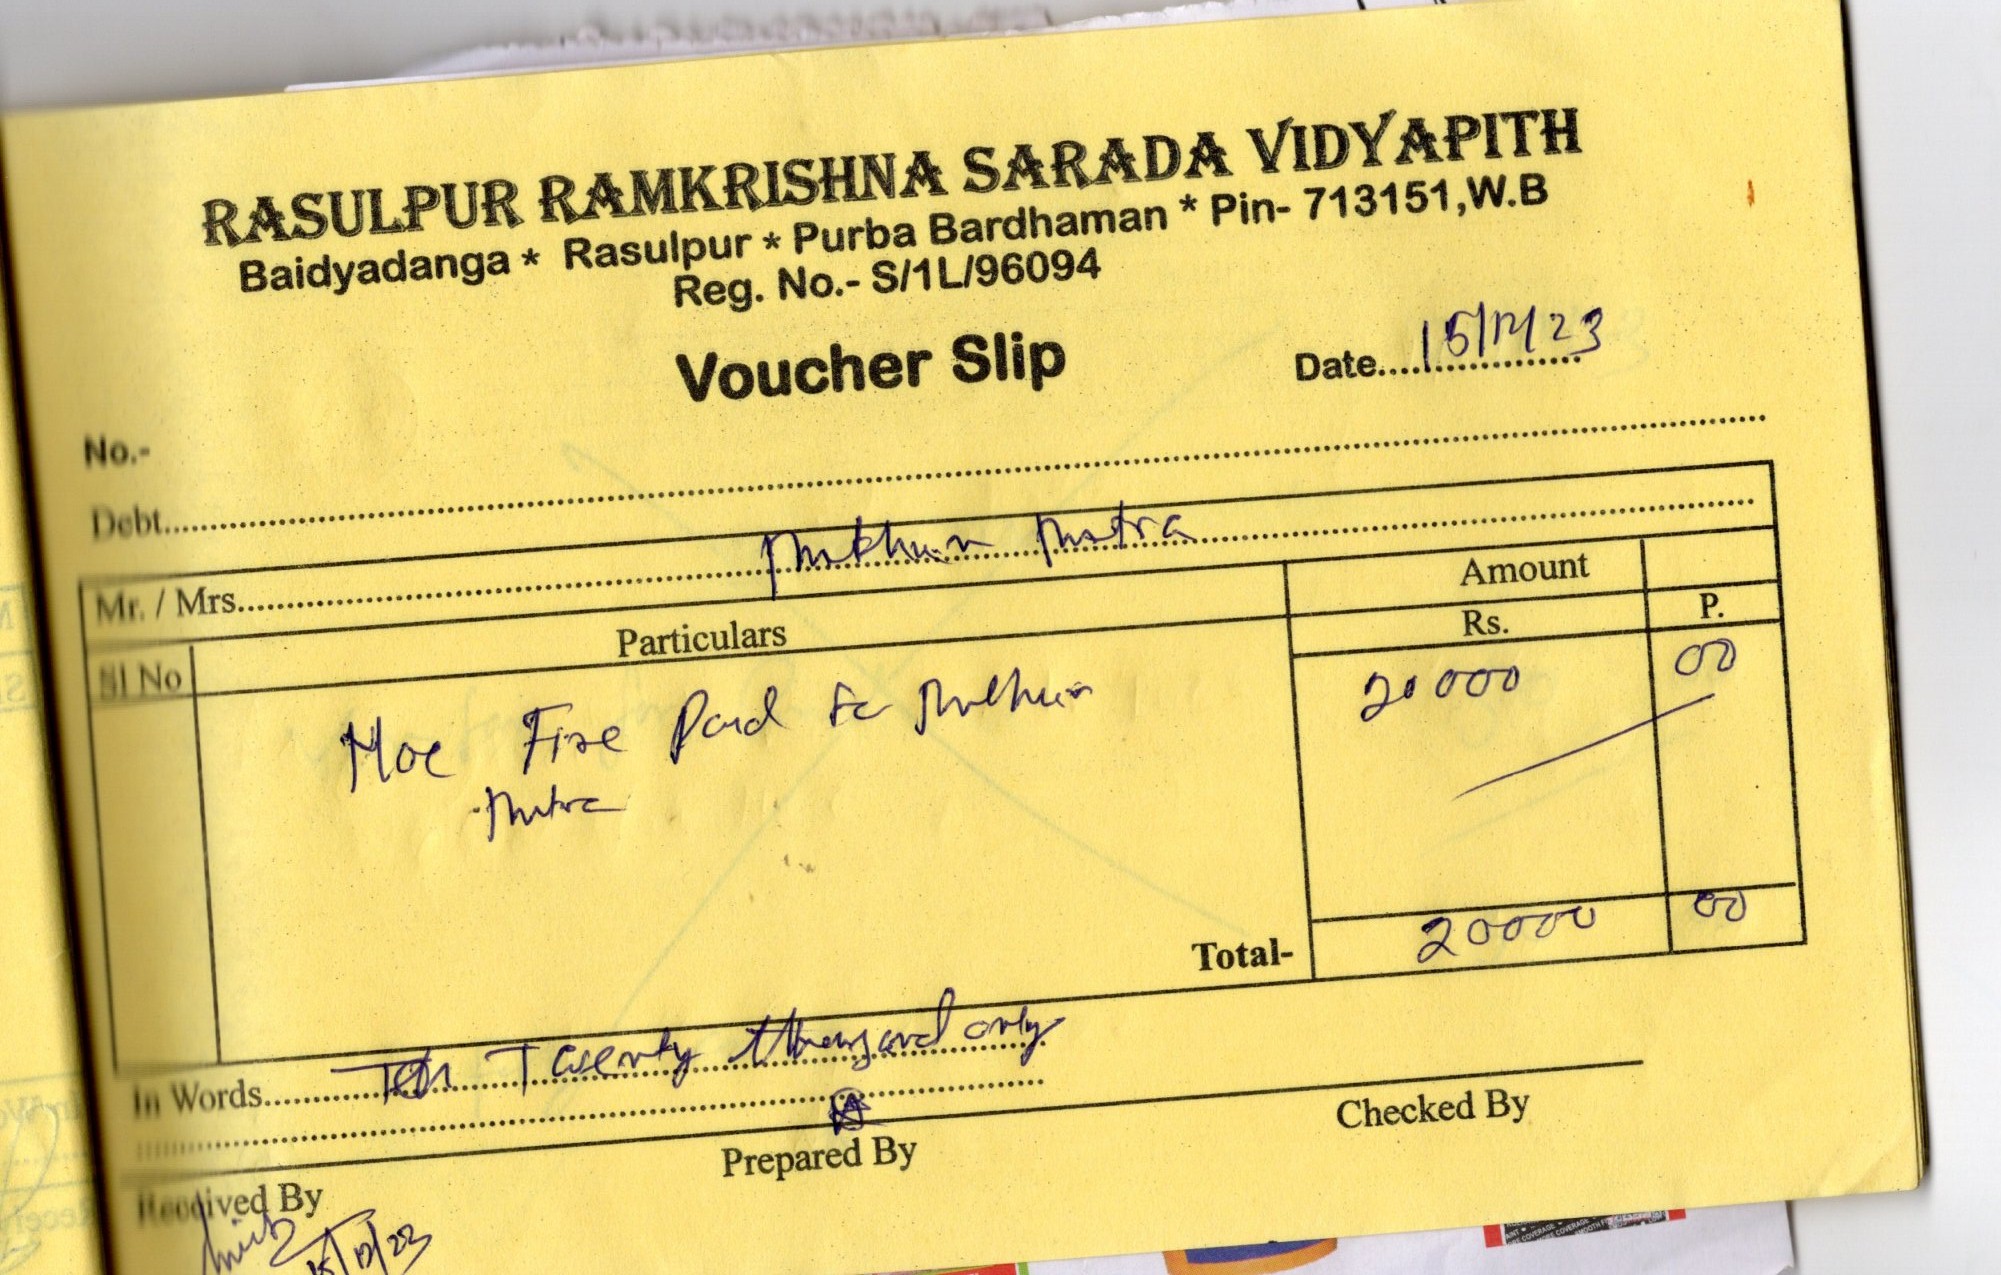 RASULPUR RAMKRISHNA SARADA VIDYAPITH
Baidyadanga * Rasulpur * Purba Bardhaman * Pin- 713151,W.B
Reg. No.- S/1L/96094
Voucher Slip
Date.... 15/12/23
No.-
Debt
Mr. / Mrs. Mithun Mitra
Sl No Particulars Amount
Rs. P.
Fire Paid to Mithun 20000 00
Mitra
Total- 20000 00
In Words Twenty thousand only
Received By Prepared By Checked By
15/12/23